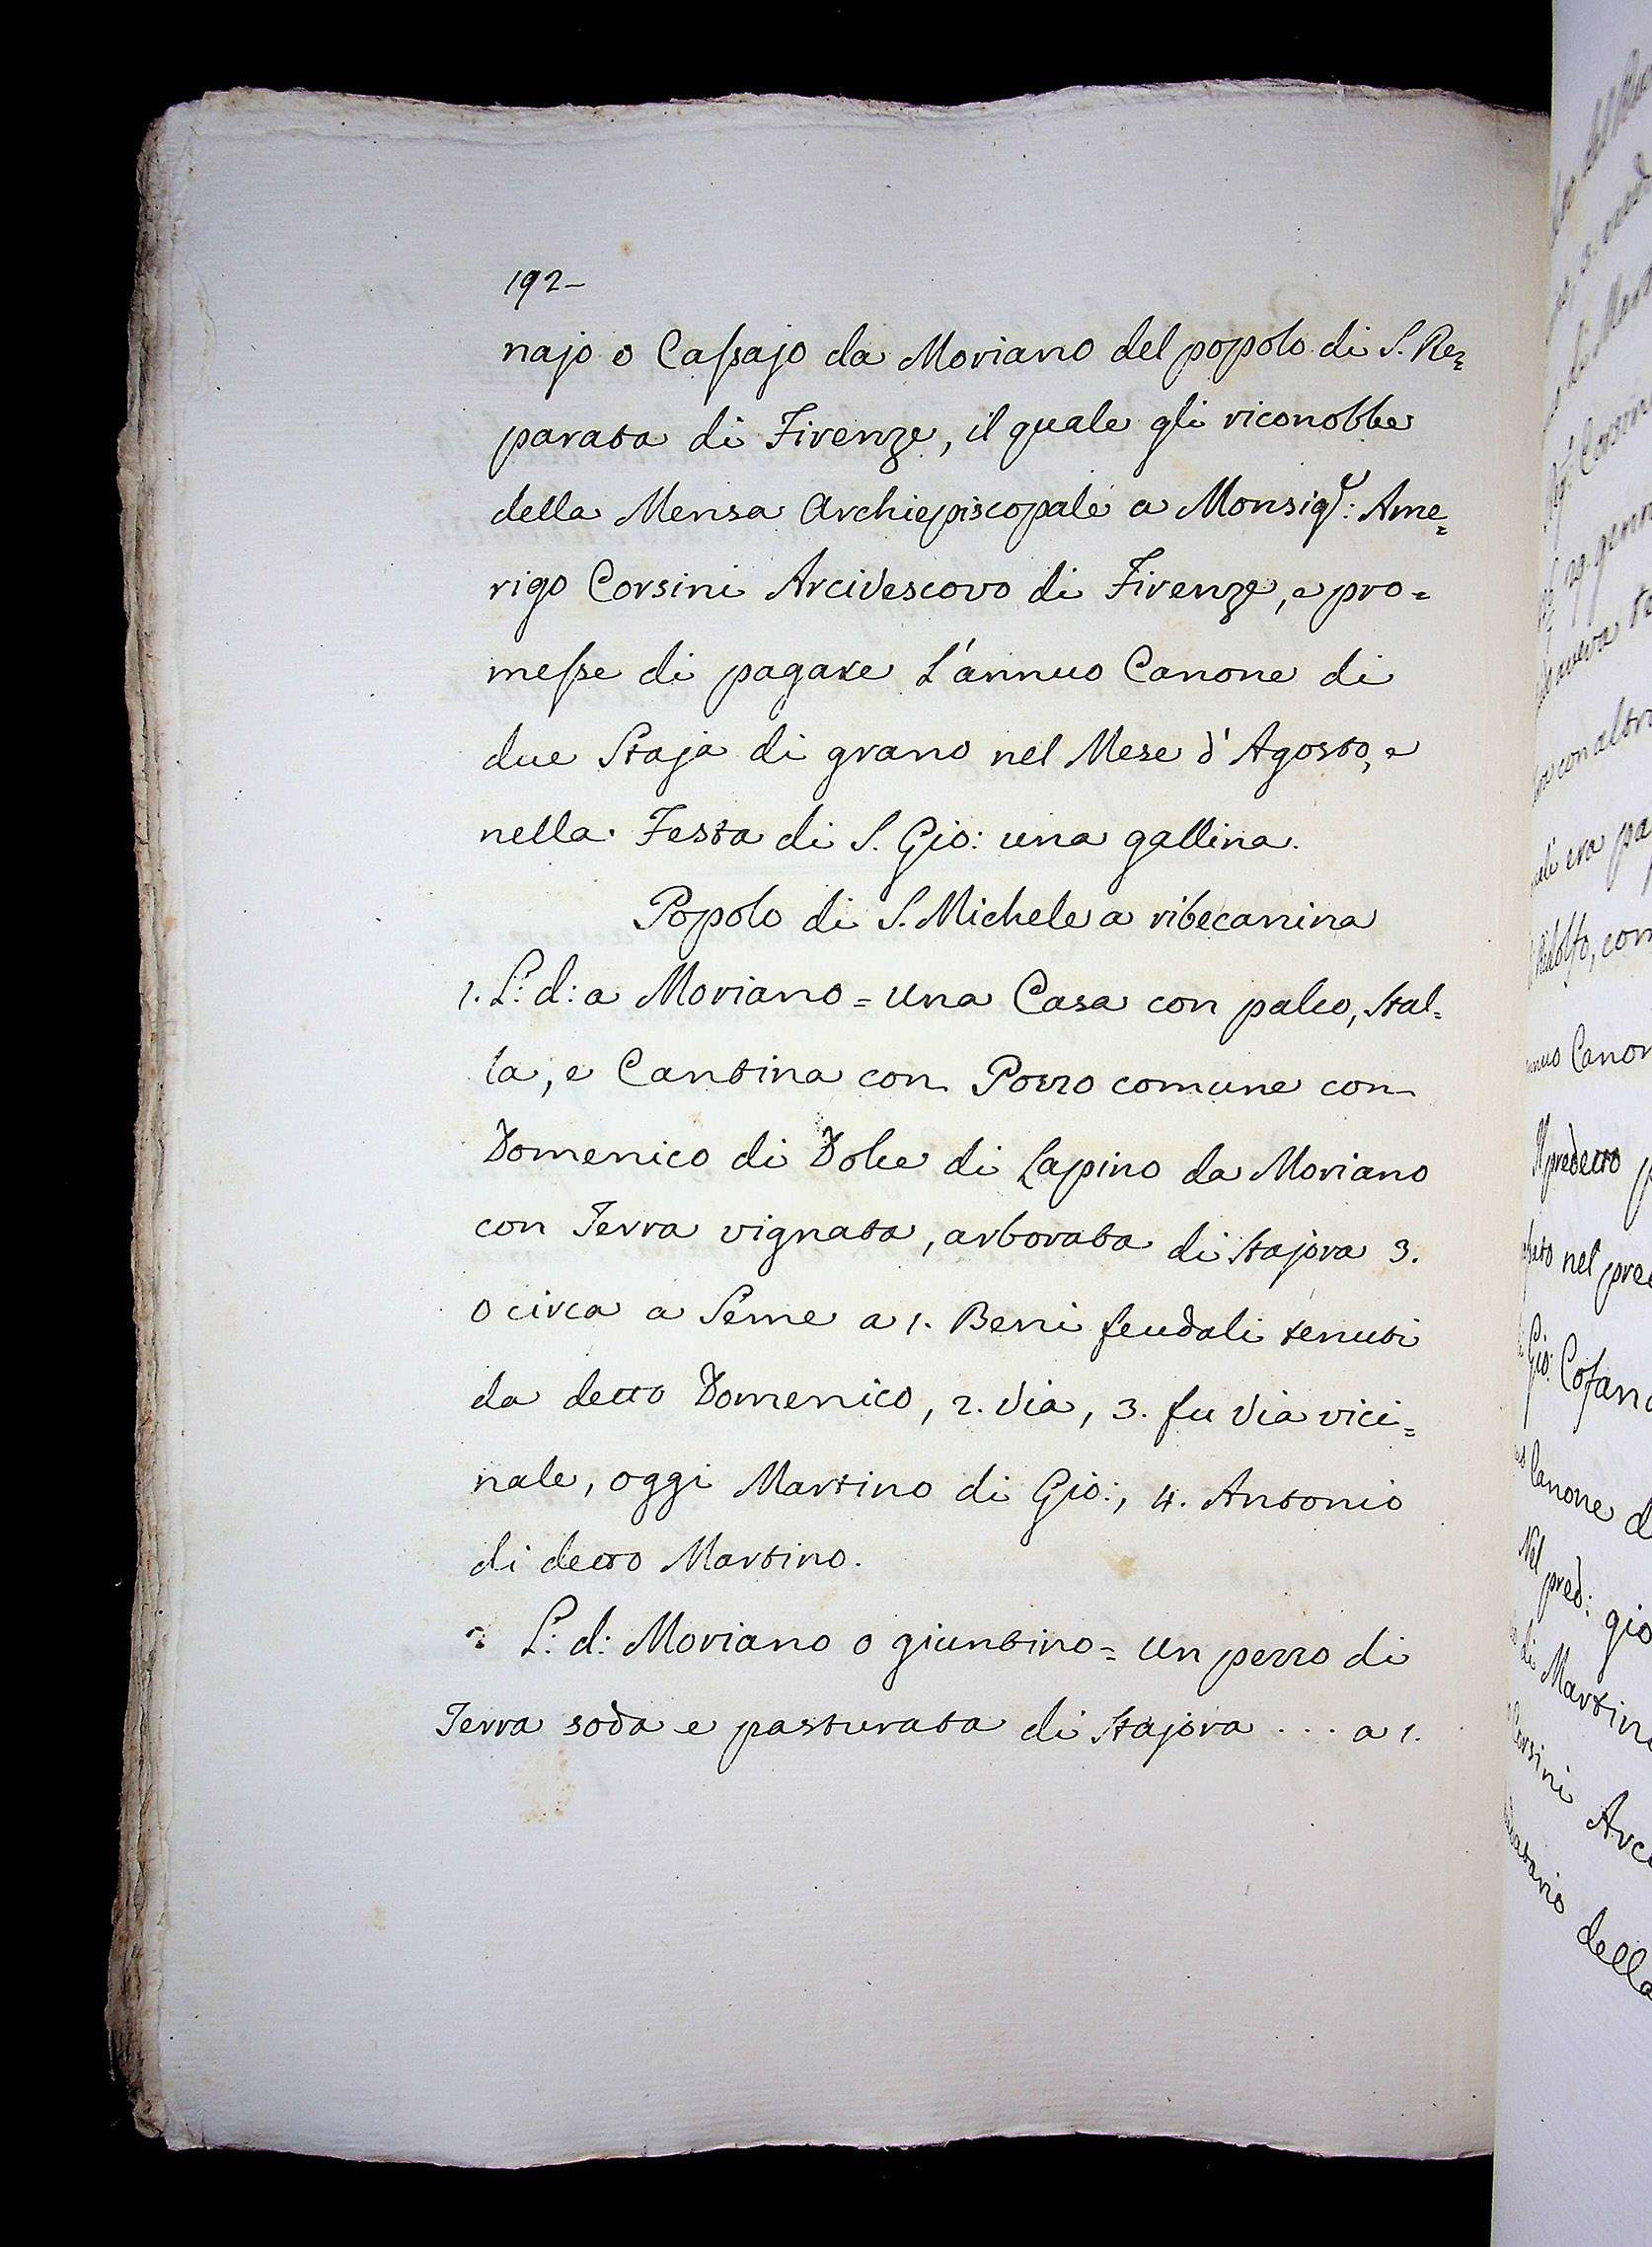 192-
najo o Cassajo da Moriano del popolo di S. Re=
parata di Firenze, il quale gli riconobbe
della Mensa Archiepiscopale a Monsigr: Ame=
rigo Corsini Arcivescovo di Firenze, e pro=
messe di pagare l'annuo Canone di
due Staja di grano nel Mese d'Agosto, e
nella Festa di S. Gio: una gallina.
Popolo di S. Michele a ribecanina
1. L: d: a Moriano = una Casa con palco, Stal=
la, e Cantina con Pozzo comune con
Domenico di Dolce di Lapino da Moriano
con Terra vignata, arborata di Stajora 3.
o circa a Seme a 1. Beni feudali tenuti
da detto Domenico, 2. Via, 3. fu Via vici=
nale, oggi Martino di Gio:, 4. Antonio
di detto Martino.
2. L: d: Moriano o giuntino = un pezzo di
Terra soda e pasturata di Stajora ... a 1.
genn
aveva
con altri
era pa
Ridolfo, com
Canon
Il predetto p
nel pred
Gio: Cofan
Canone d
Nel pred: gio
di Martino
Corsini Arci
della